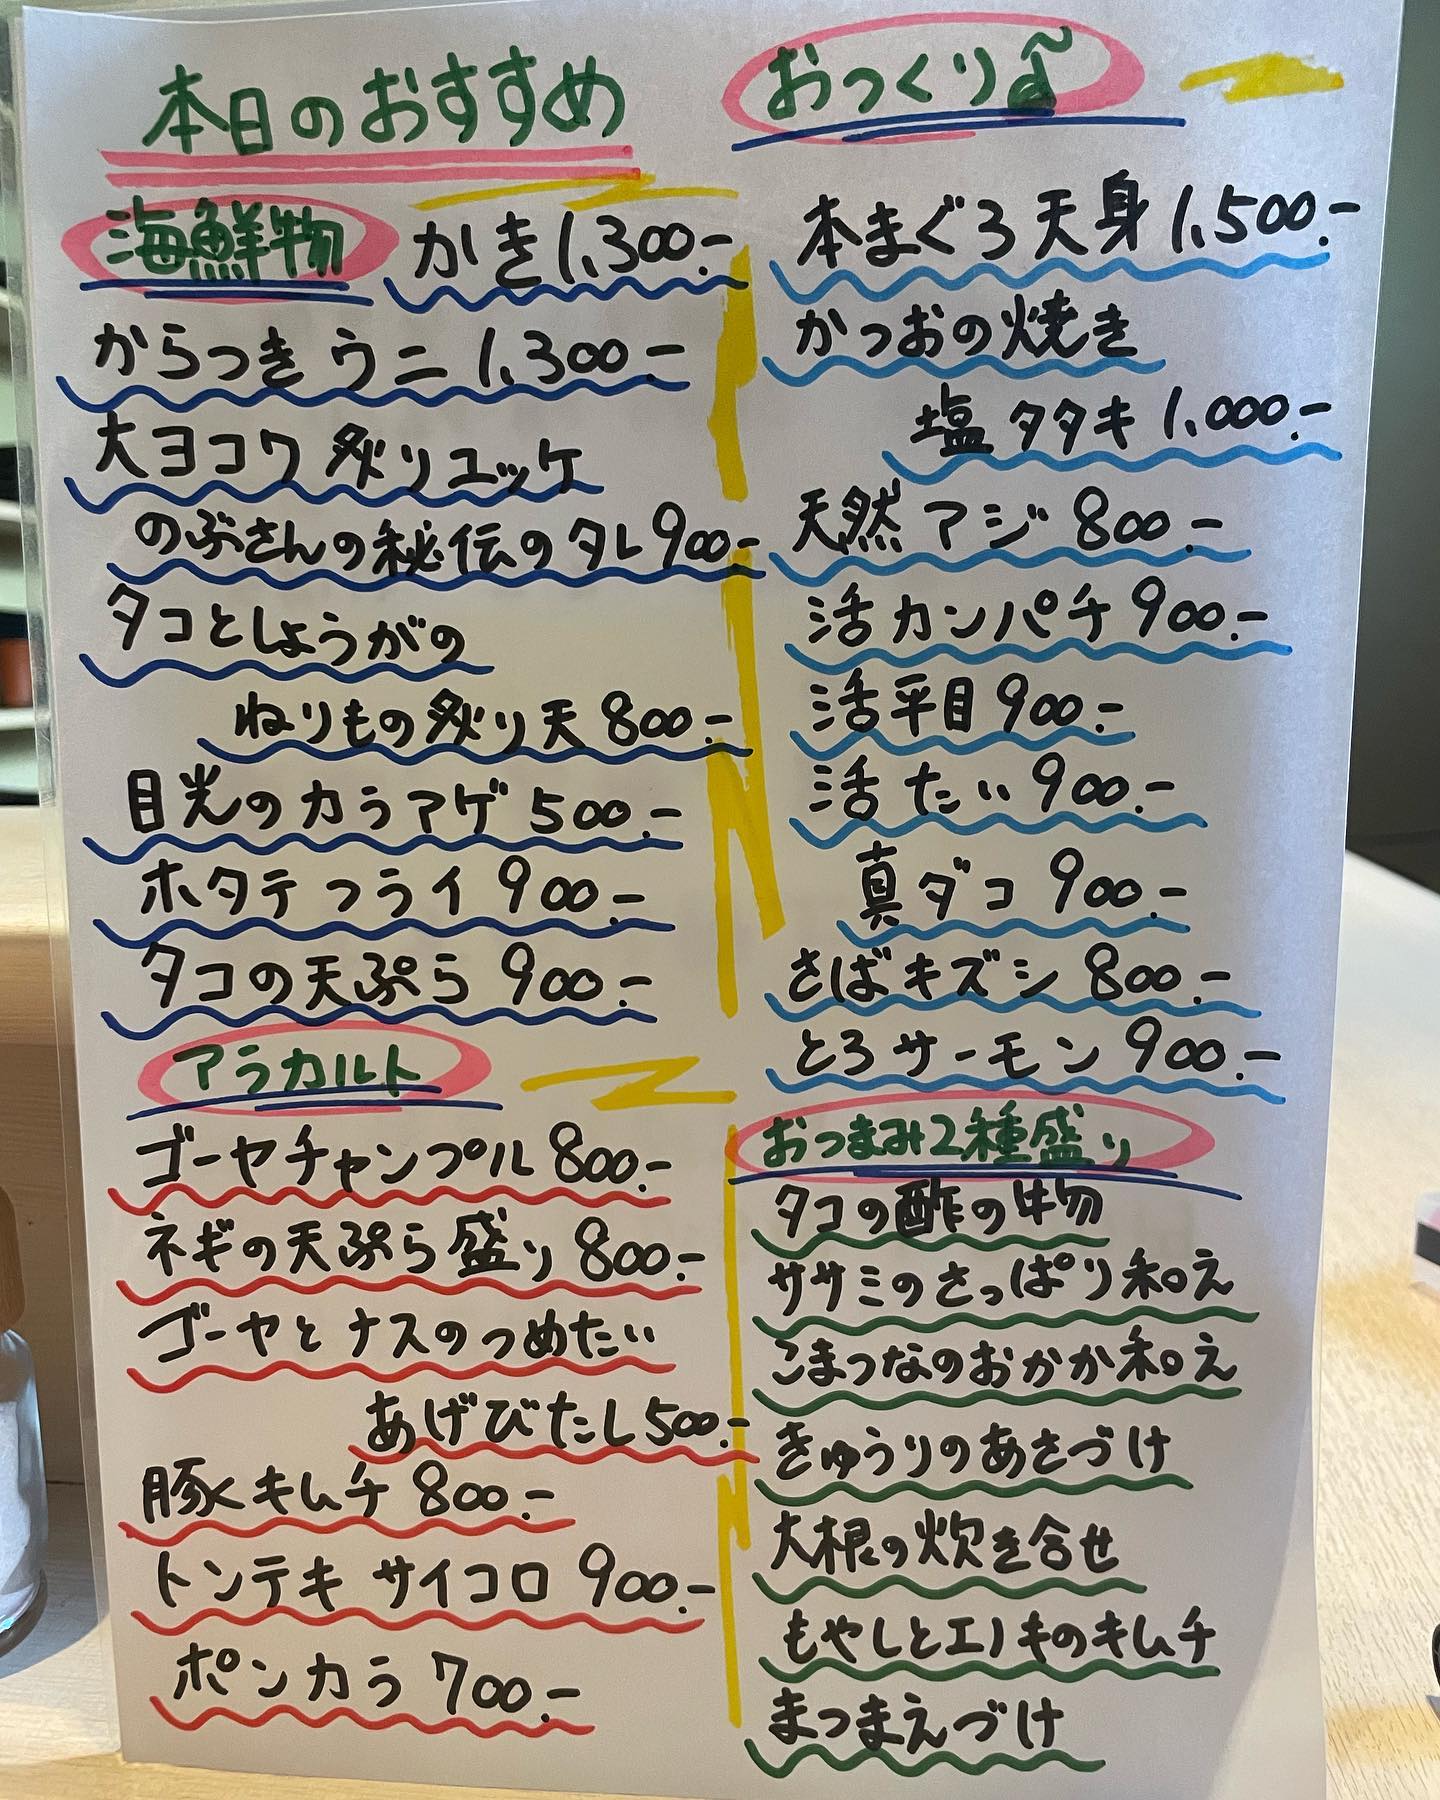 本日のおすすめ
海鮮物
かき 1,300.-
からつき ウニ 1,300.-
大ヨコワ 炙りユッケ
のぶさんの秘伝のタレ 900.-
タコとしょうがの
ねりもの炙り天 800.-
目光のカラアゲ 500.-
ホタテフライ 900.-
タコの天ぷら 900.-
アラカルト
ゴーヤチャンプル 800.-
ネギの天ぷら盛り 800.-
ゴーヤとナスのつめたい
あげびたし 500.-
豚くキムチ 800.-
トンテキ サイコロ 900.-
ポンカラ 700.-
おつくり
本まぐろ天身 1,500.-
かつおの焼き
塩タタキ 1,000.-
天然アジ 800.-
活カンパチ 900.-
活平目 900.-
活たい 900.-
真ダコ 900.-
さばキズシ 800.-
とろサーモン 900.-
おつまみ2種盛り
タコの酢の物
ササミのさっぱり和え
こまつなのおかか和え
きゅうりのあさづけ
大根の炊き合せ
もやしとエノキのキムチ
まつまえづけ